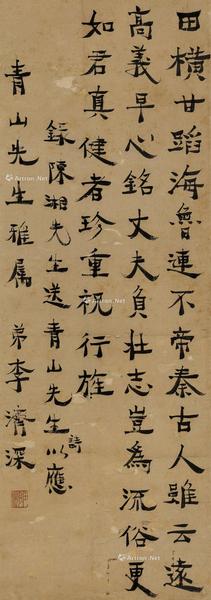 田横甘蹈海魯連不帝秦古人雖云遠
高義早心銘丈夫負壯志豈為流俗更
如君真健者珍重祝行旌
錄陳湘先生送青山先生詩以應
青山先生雅属 弟李濟深